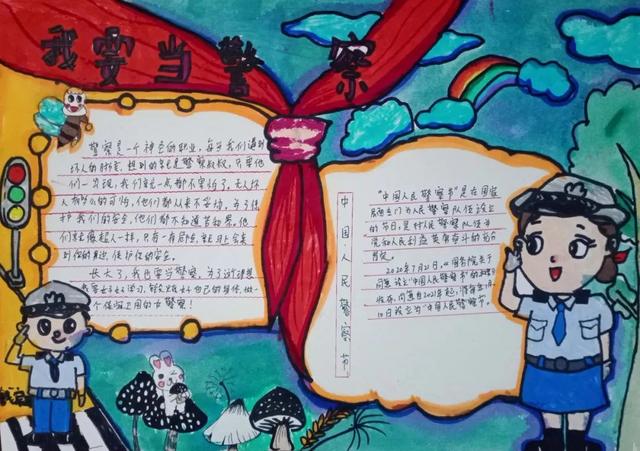 我要当警察
警察是一个神圣的职业，每当我们遇到
坏人的时候，想到的总是警察叔叔，只要他
们一出现，我们就一点都不害怕了。无人怀
有多么的可怕，他们都从来不害怕，为了保
护我们的安全，他们都不知道苦和累。他
们就像超人一样，只有一有危险，就马上会来
到你的身边，保护你的安全。
长大了，我也要当警察，为了这个理想
我要好好学习，锻炼好自己的身体，做一
个保家卫国的女警察！
中国人民警察节
“中国人民警察节”是在国家
层面专门为人民警察队伍设立
的节日，是对人民警察队伍
党和人民利益英勇奋斗的充分
肯定。
2020年7月21日，《国务院关于
同意设立“中国人民警察节”的批复》
发布，同意自2021年起，将每年1月
10日设立为“中国人民警察节”。